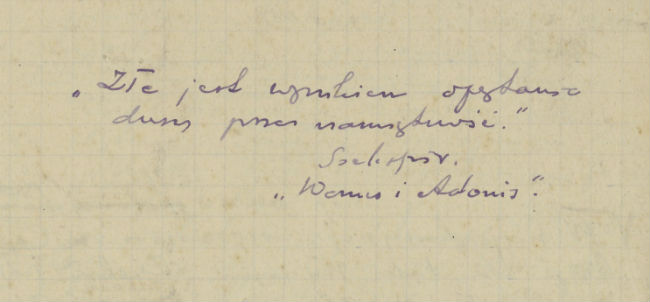 „Złe jest wynikiem opętania
duszy przez namiętność."
Szekspir.
„Wenus i Adonis".